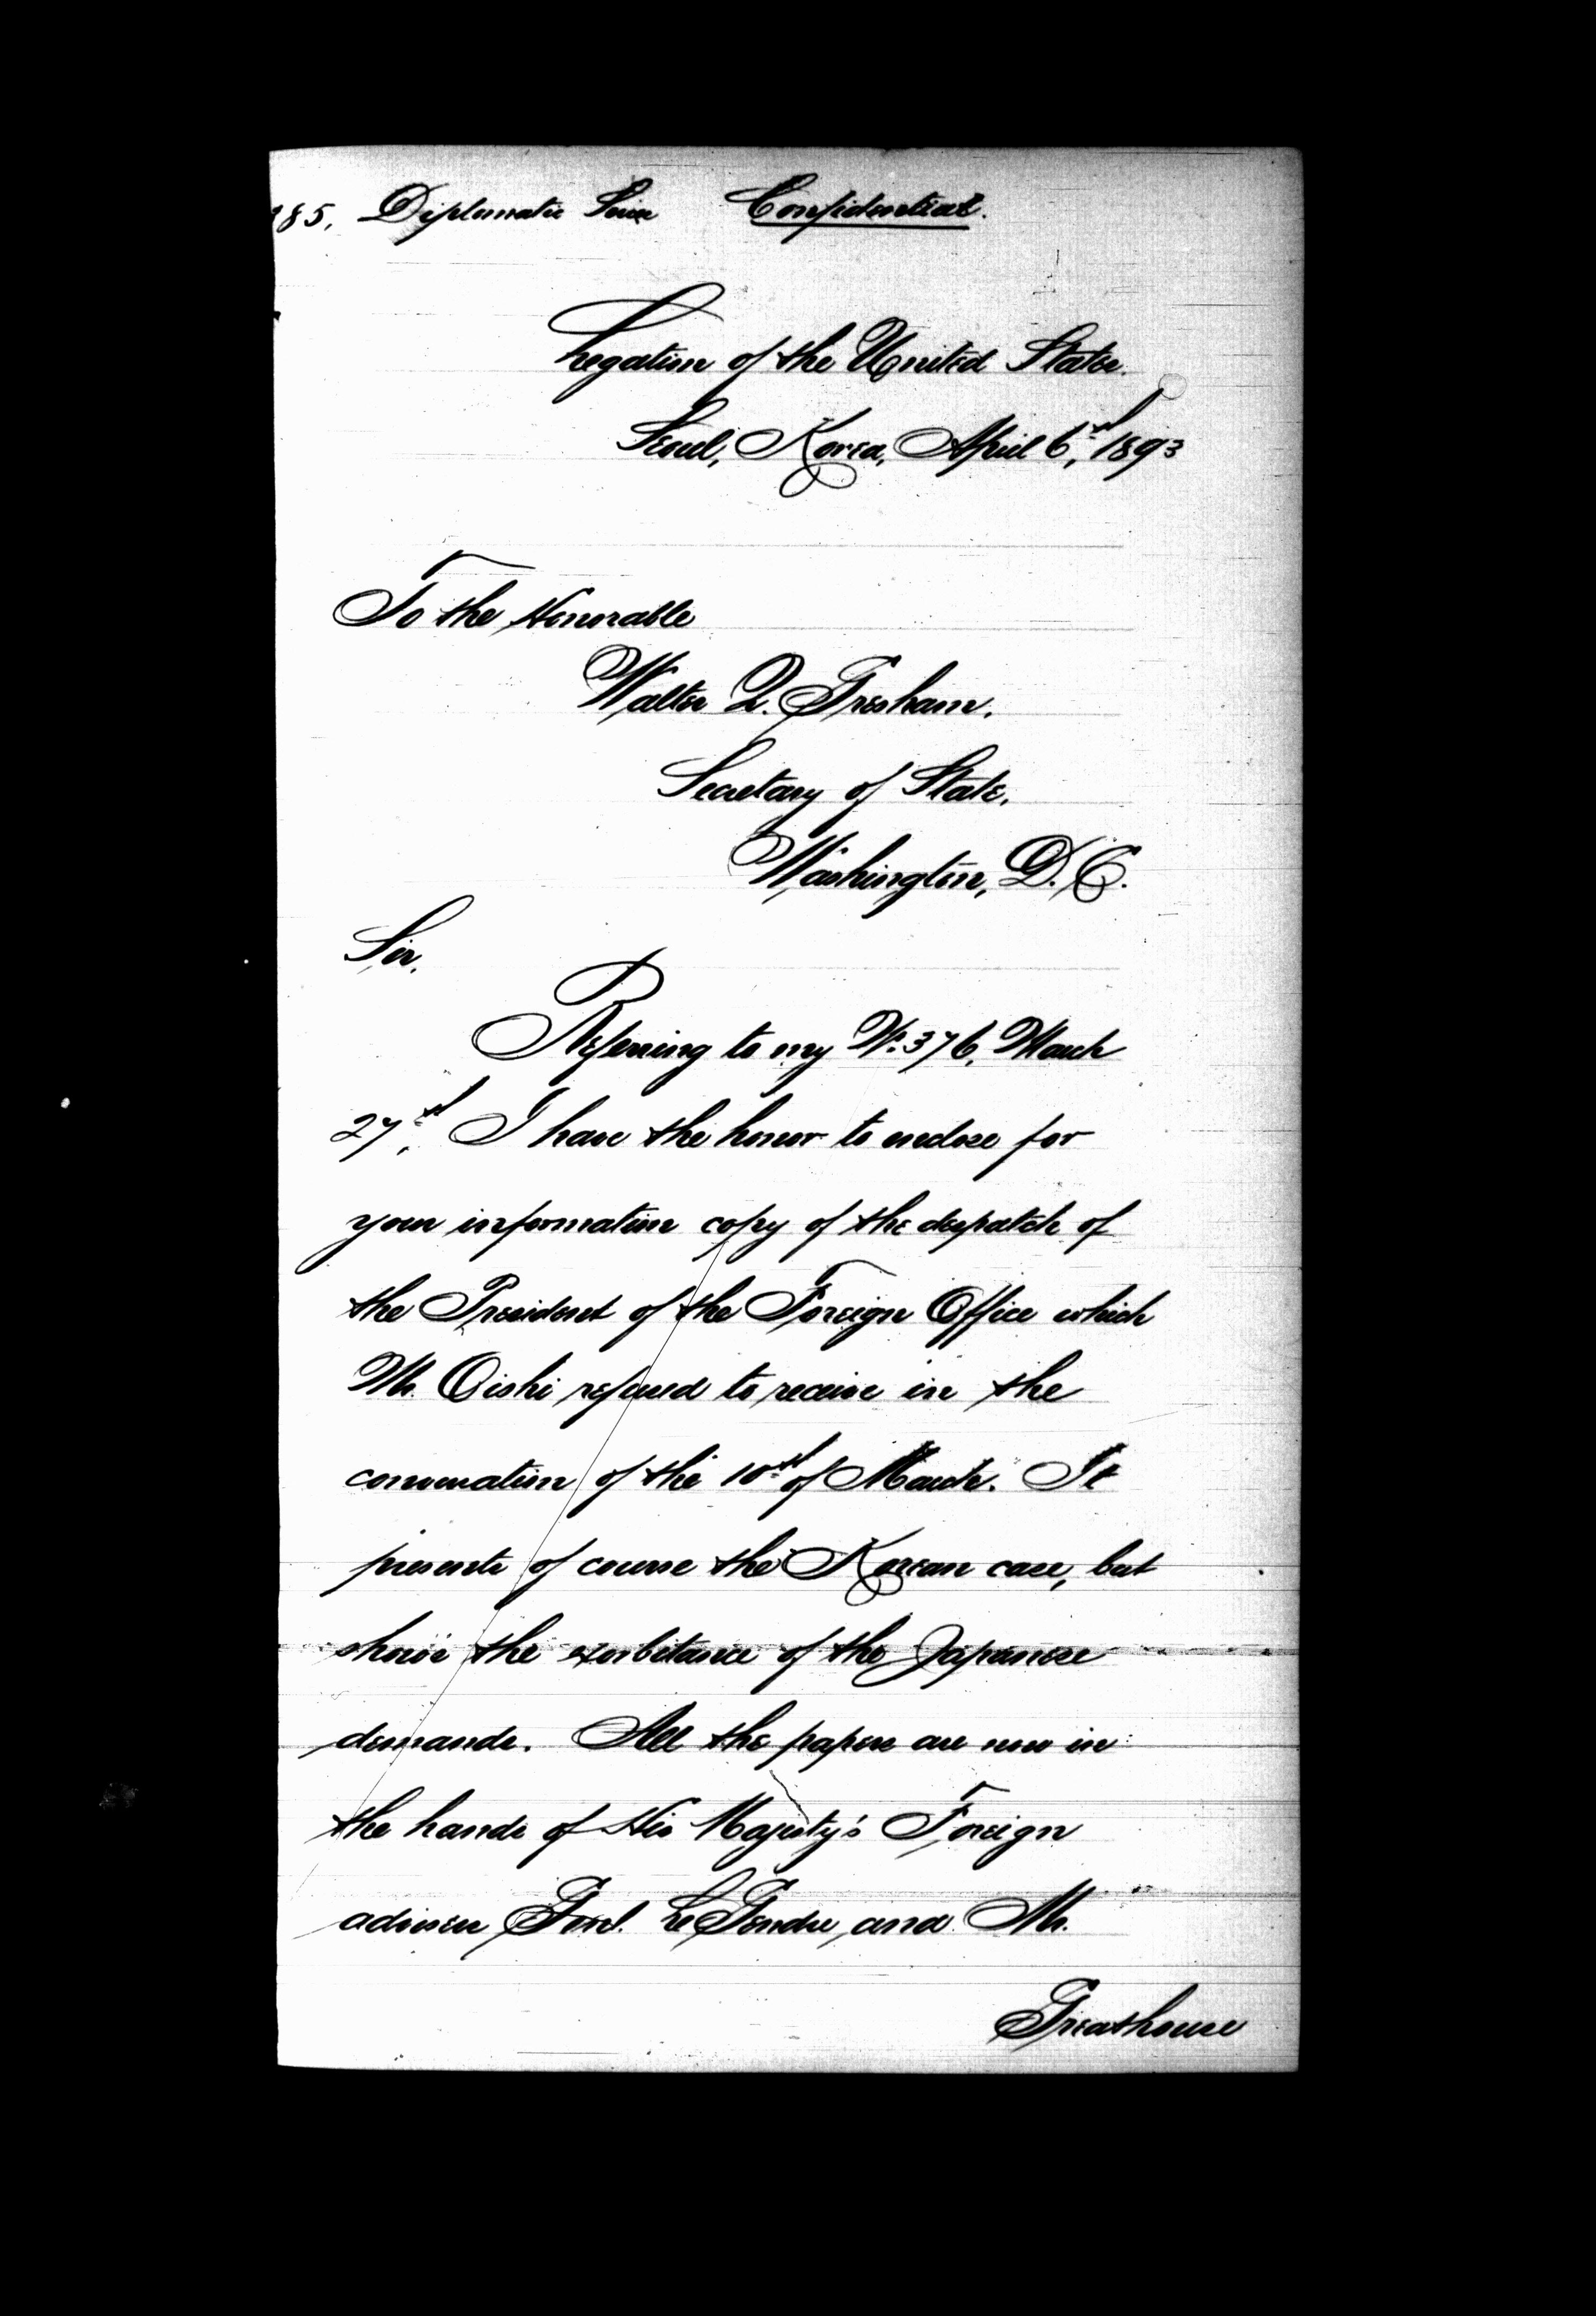 385, Diplomatic Series Confidential.
Legation of the United States.
Seoul, Korea, April 6th, 1893
To the Honorable
Walter Q. Gresham.
Secretary of State.
Washington, D.C.
Sir.
Referring to my No. 376, March
27th, I have the honor to enclose for
your information copy of the despatch of
the President of the Foreign Office which
Mr. Oishi refused to receive in the
conversation of the 10th of March. It
presents of course the Korean case, but
shows the exorbitance of the Japanese
demands. All the papers are now in
the hands of His Majesty's Foreign
advisers Genl. LeGendre, and Mr.
Greathouse